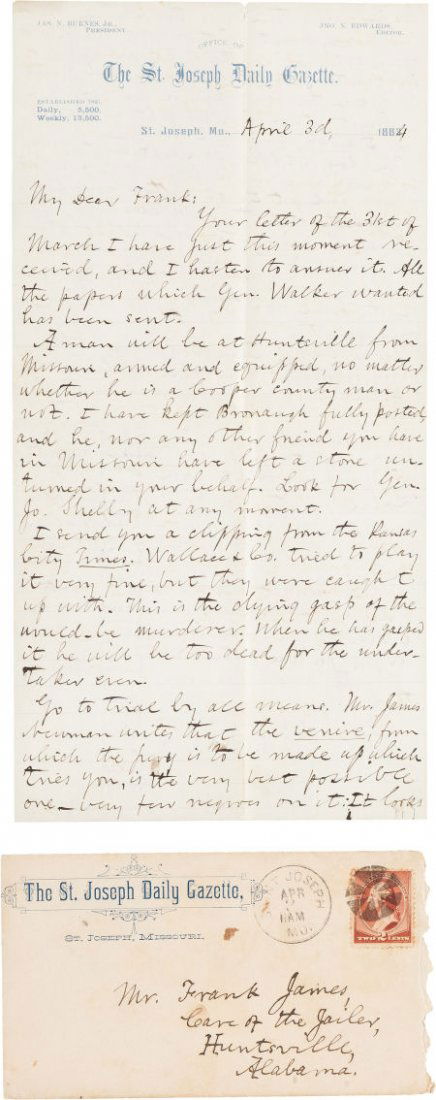 JAS. N. BURNES, JR.,
PRESIDENT.
JNO. N. EDWARDS,
EDITOR.
OFFICE OF
The St. Joseph Daily Gazette.
ESTABLISHED 1845.
Daily, 5,500.
Weekly, 13,500.
St. Joseph, Mo., April 3d, 1884
My Dear Frank:
Your letter of the 31st of
March I have just this moment re-
ceived, and I hasten to answer it. All
the papers which Gen. Walker wanted
has been sent.
A man will be at Huntsville from
Missouri, armed and equipped, no matter
whether he is a Cooper county man or
not. I have kept Bronaugh fully posted,
and he, nor any other friend you have
in Missouri have left a stone un-
turned in your behalf. Look for Gen.
Jo. Shelby at any moment.
I send you a clipping from the Kansas
City Times. Wallace & Co. tried to play
it very fine, but they were caught
up with. This is the dying gasp of the
would-be murderer. When he has gasped
it he will be too dead for the under-
taker even.
Go to trial by all means. Mr. James
Newman writes that the venire, from
which the jury is to be made up which
tries you, is the very best possible
one – very few negroes on it. It looks
The St. Joseph Daily Gazette,
ST. JOSEPH, MISSOURI.
ST JOSEPH
APR
6AM
MO.
TWO 2 CENTS
Mr. Frank James,
Care of the Jailer,
Huntsville,
Alabama.